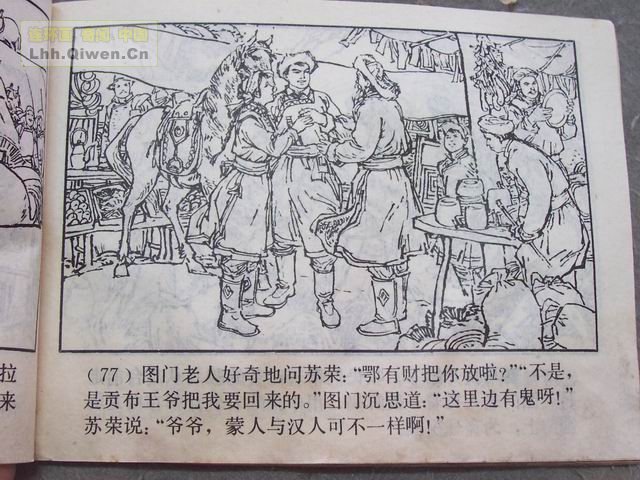 连环画 备阅 中国
Lhh.Qiwen.Cn
拉
来
(77) 图门老人好奇地问苏荣：“鄂有财把你放啦？”“不是，
是贡布王爷把我要回来的。”图门沉思道：“这里边有鬼呀！”
苏荣说：“爷爷，蒙人与汉人可不一样啊！”